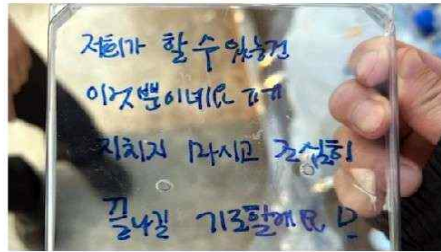 저희가 할 수 있는건
이것 뿐이네요
지치지 마시고 조심히
끝나길 기도할게요